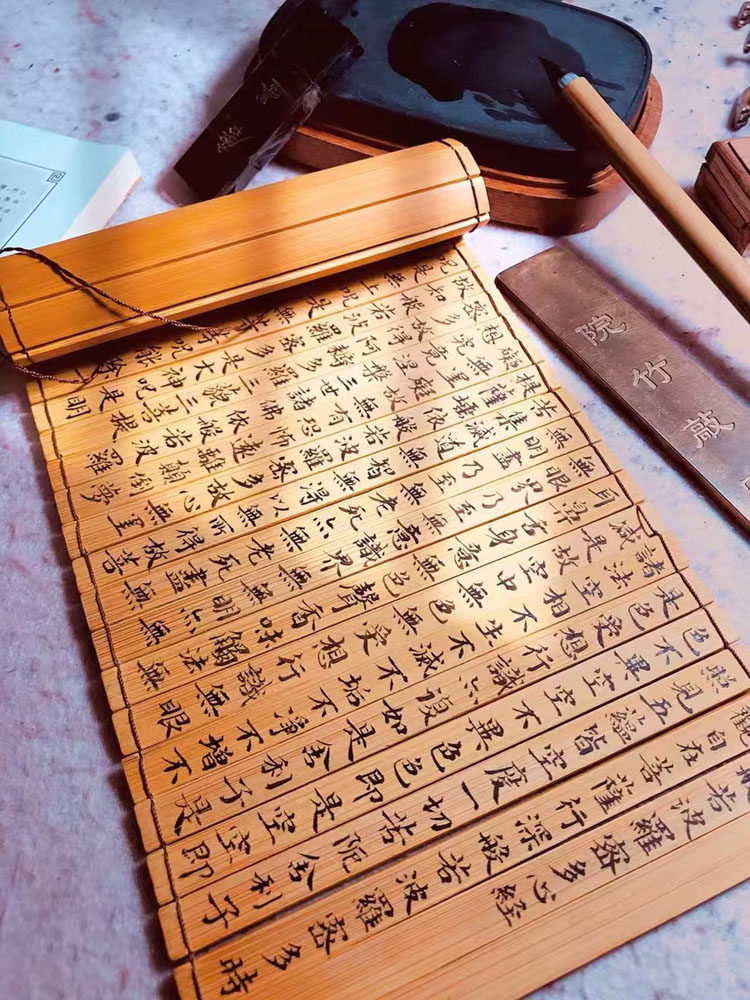 若波羅密多心經
觀自在菩薩行深般若波羅密多時
照見五蘊皆空度一切苦厄舍利子
色不異空空不異色色即是空空即
是色受想行識亦復如是舍利子是
諸法空相不生不滅不垢不淨不增不
減是故空中無色無受想行識無眼
耳鼻舌身意無色聲香味觸法無
眼界乃至無意識界無無明亦無
無明盡乃至無老死亦無老死盡無
苦集滅道無智亦無得以無所得故菩
提薩埵依般若波羅密多故心無罣
礙無罣礙故無有恐怖遠離顛倒夢
想究竟涅槃三世諸佛依般若波羅
密多故得阿耨多羅三藐三菩提
故知般若波羅密多是大神咒是大明
咒是無上咒是無等等咒能除
院竹敲